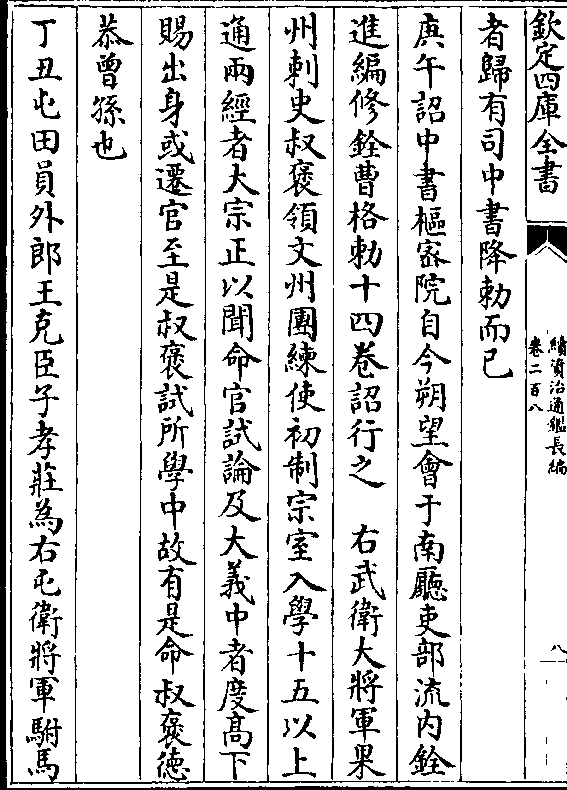 欽定四庫全書
續資治通鑑長編
卷二百八
八
者歸有司中書降勅而已
庚午詔中書樞宻院自今朔望會于南廳吏部流内銓
進編修銓曹格勅十四卷詔行之 右武衛大將軍果
州刺史叔褒領文州團練使初制宗室入學十五以上
通兩經者大宗正以聞命官試論及大義中者度髙下
賜出身或遷官至是叔褒試所學中故有是命叔褒德
恭曾孫也
丁丑屯田員外郎王克臣子孝莊為右屯衛將軍駙馬